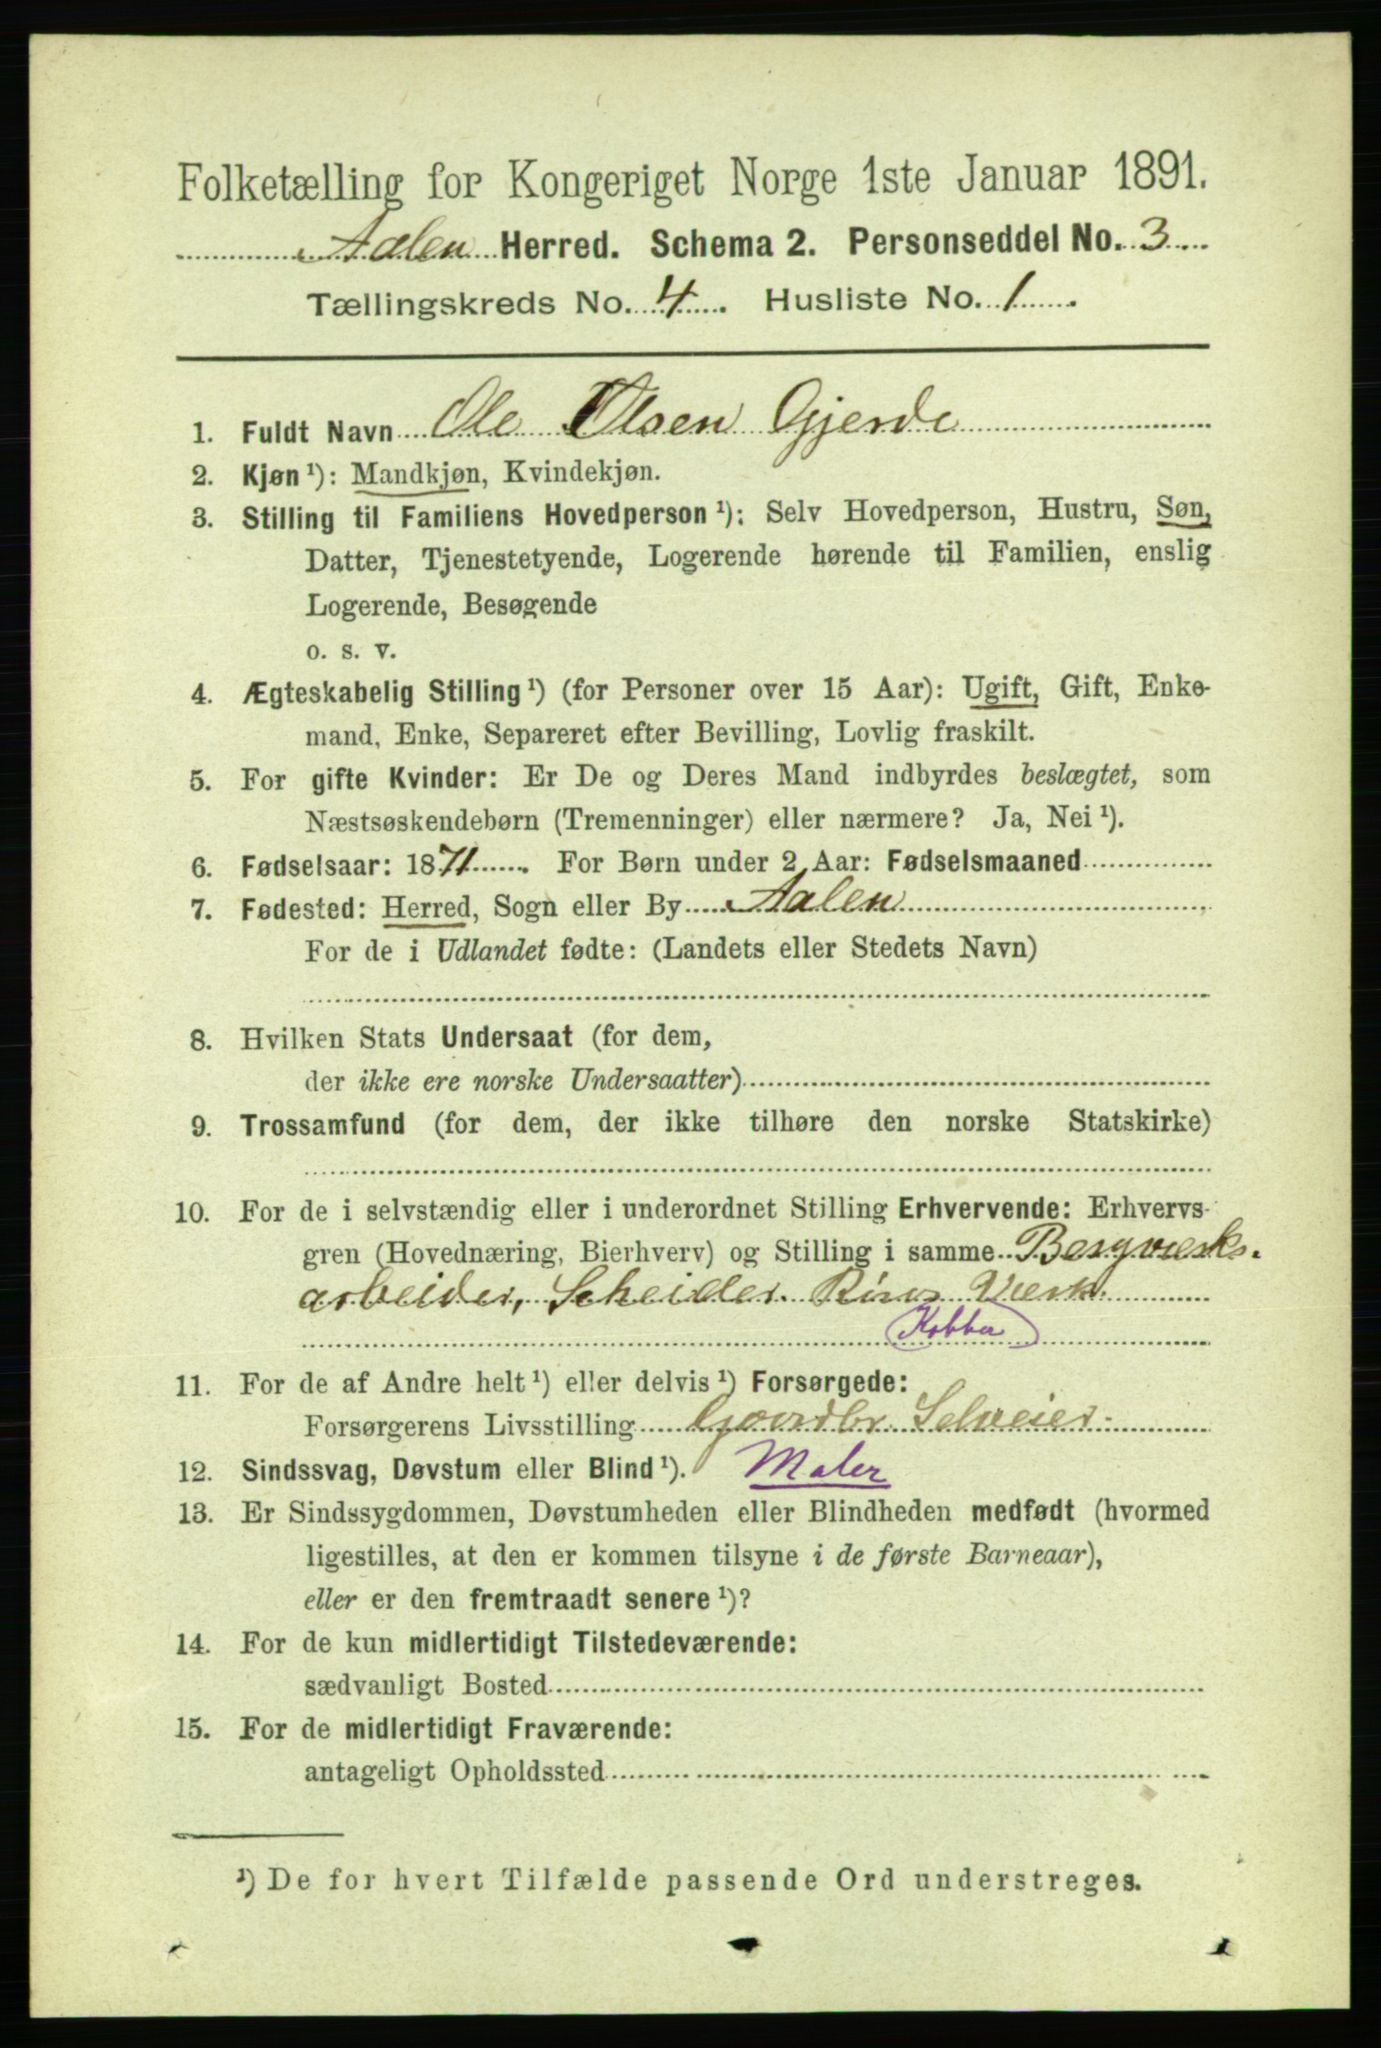 Folketælling for Kongeriget Norge 1ste Januar 1891.
Aalen Herred. Schema 2. Personseddel No. 3
Tællingskreds No. 4. Husliste No. 1.
1. Fuldt Navn Ole Olsen Gjerde
2. Kjøn ¹): Mandkjøn, Kvindekjøn.
3. Stilling til Familiens Hovedperson ¹): Selv Hovedperson, Hustru, Søn,
Datter, Tjenestetyende, Logerende hørende til Familien, enslig
Logerende, Besøgende
o. s. v.
4. Ægteskabelig Stilling ¹) (for Personer over 15 Aar): Ugift, Gift, Enke-
mand, Enke, Separeret efter Bevilling, Lovlig fraskilt.
5. For gifte Kvinder: Er De og Deres Mand indbyrdes beslægtet, som
Næstsøskendebørn (Tremenninger) eller nærmere? Ja, Nei ¹).
6. Fødselsaar: 1871. For Børn under 2 Aar: Fødselsmaaned
7. Fødested: Herred, Sogn eller By Aalen
For de i Udlandet fødte: (Landets eller Stedets Navn)
8. Hvilken Stats Undersaat (for dem,
der ikke ere norske Undersaatter)
9. Trossamfund (for dem, der ikke tilhøre den norske Statskirke)
10. For de i selvstændig eller i underordnet Stilling Erhvervende: Erhvervs-
gren (Hovednæring, Bierhverv) og Stilling i samme Bergværks-
arbeider, Scheider Røros Værk.
Kobber
11. For de af Andre helt ¹) eller delvis ¹) Forsørgede:
Forsørgerens Livsstilling Gaardbr. Selveier.
12. Sindssvag, Døvstum eller Blind ¹). Maler
13. Er Sindssygdommen, Døvstumheden eller Blindheden medfødt (hvormed
ligestilles, at den er kommen tilsyne i de første Barneaar),
eller er den fremtraadt senere ¹)?
14. For de kun midlertidigt Tilstedeværende:
sædvanligt Bosted
15. For de midlertidigt Fraværende:
antageligt Opholdssted
¹) De for hvert Tilfælde passende Ord understreges.